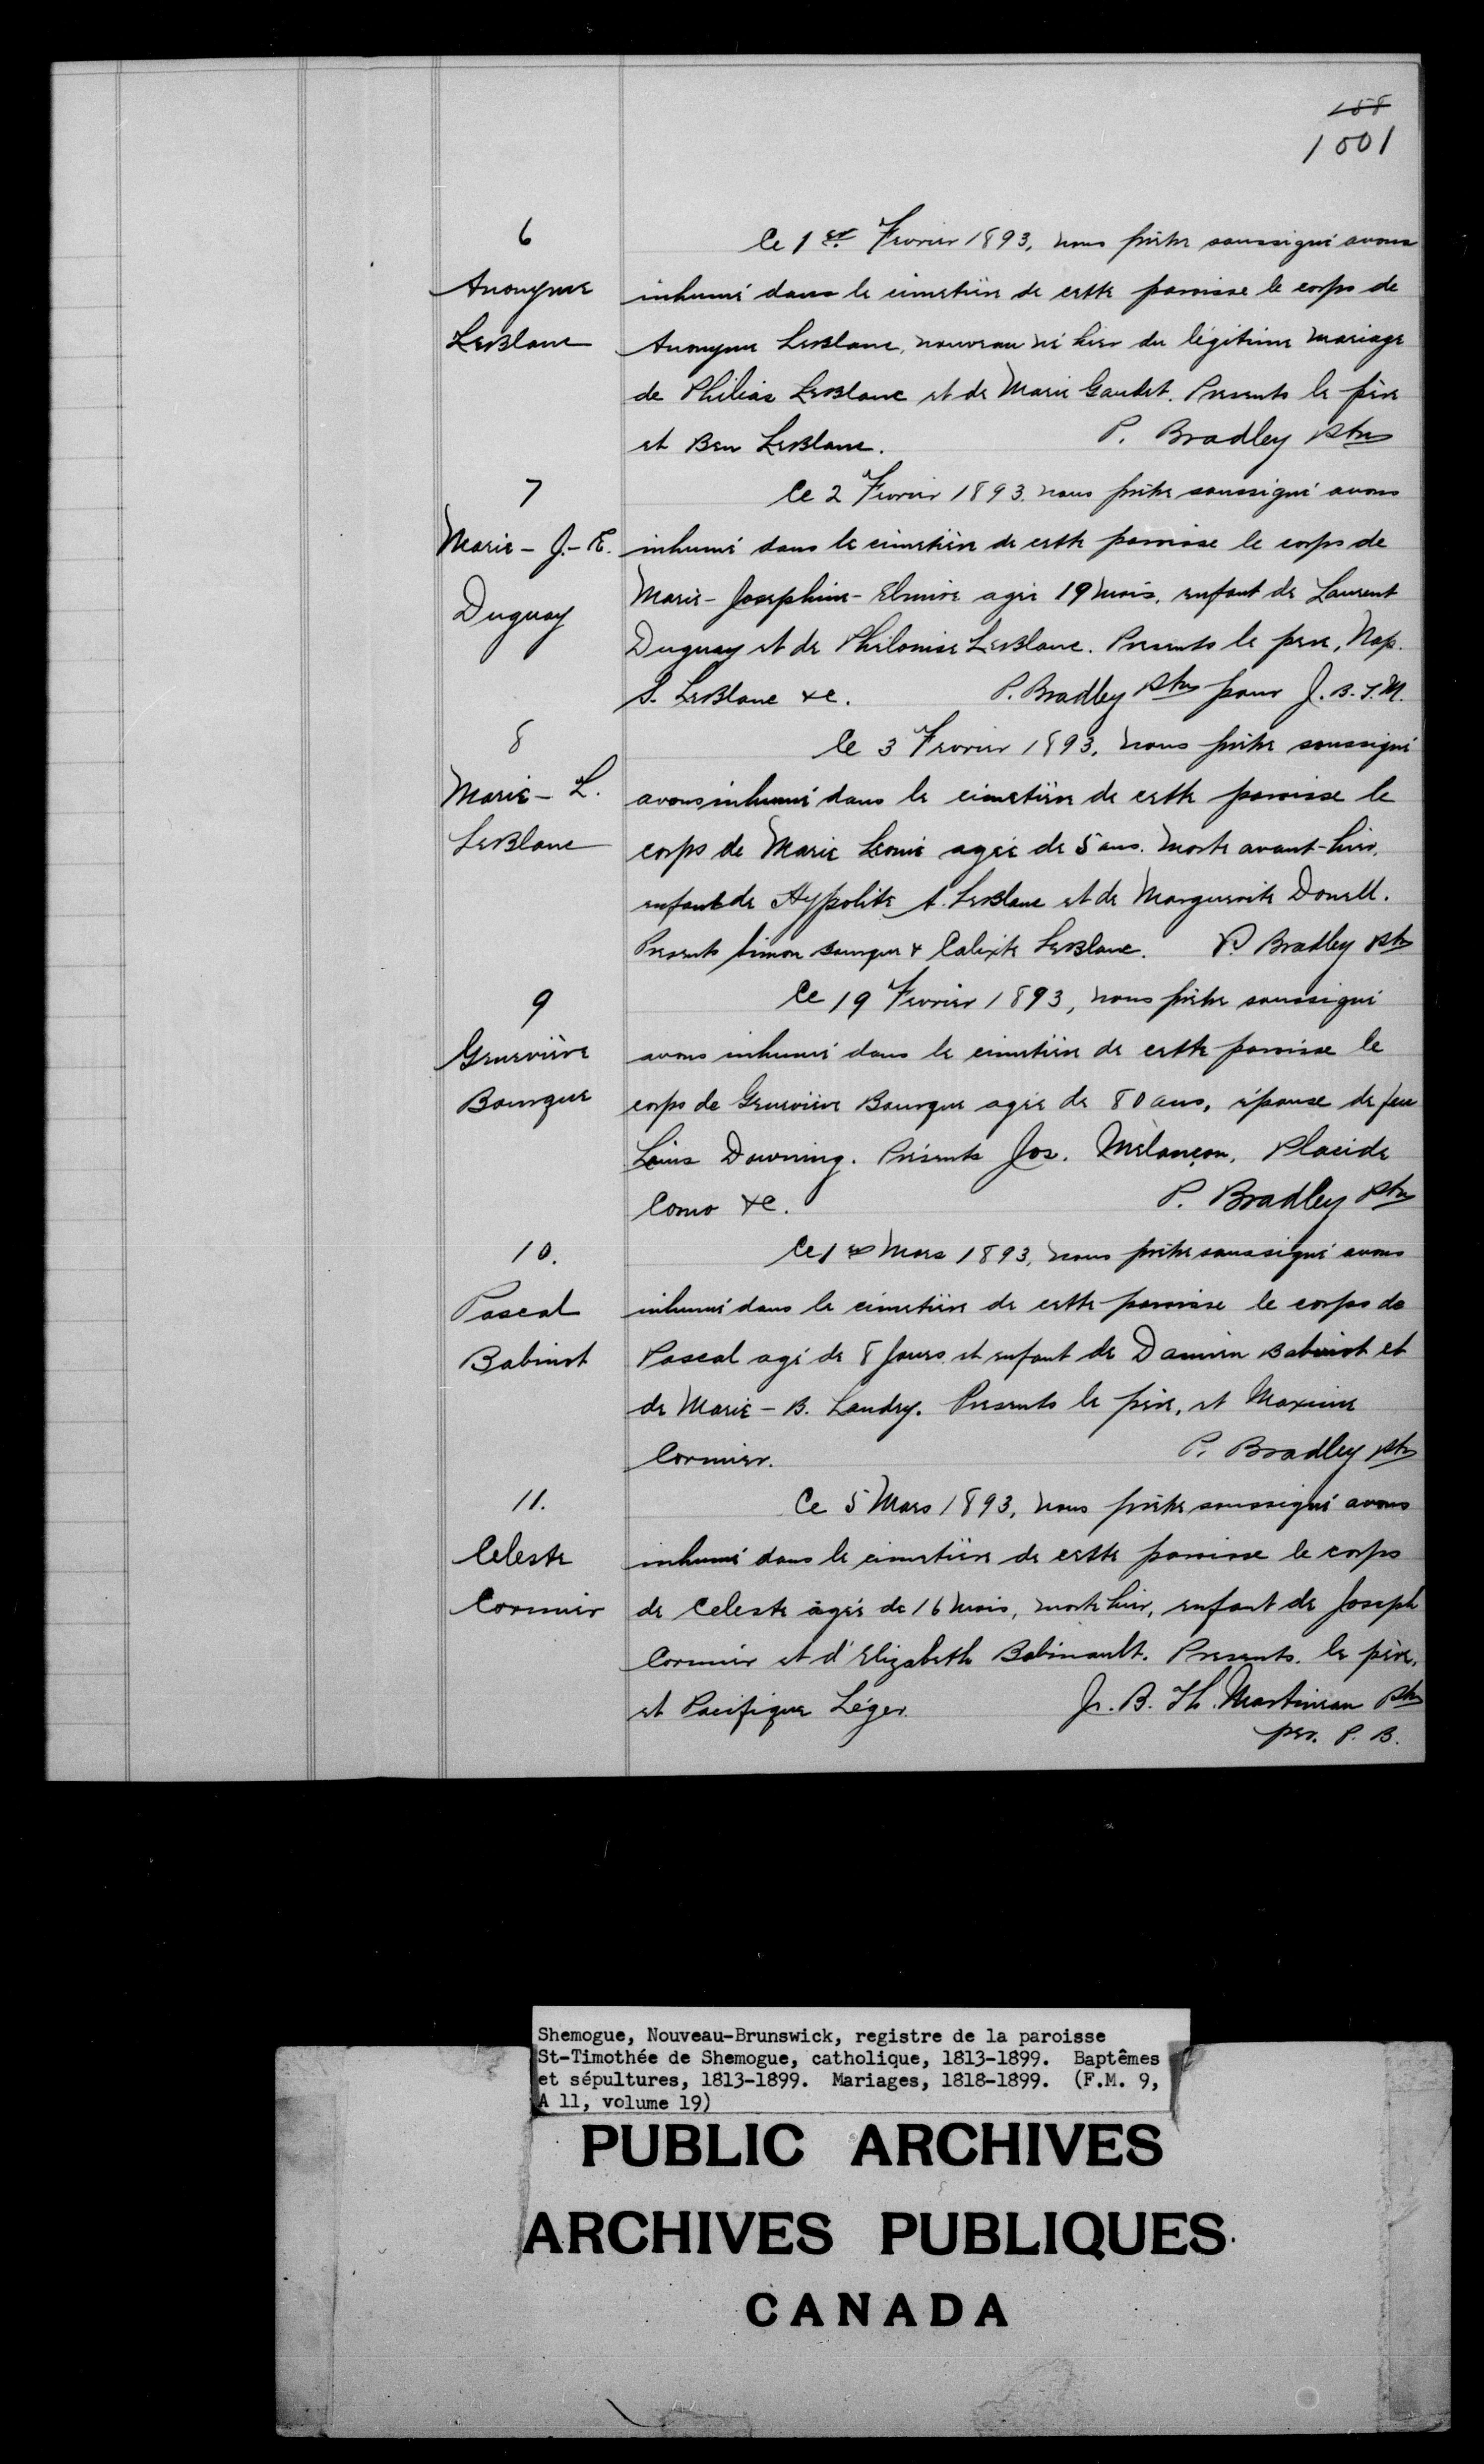 188
1001
6
Anonyme
LeBlanc
Ce 1er Fevrier 1893, nous prêtre soussigné avons
inhumé dans le cimetière de cette paroisse le corps de
Anonyme LeBlanc, nouveau né hier du légitime mariage
de Philias LeBlanc et de Marie Gaudet. Presents le père
et Ben LeBlanc. P. Bradley Ptre
7
Marie-J.-E.
Duguay
Ce 2 Fevrier 1893. nous prêtre soussigné avons
inhumé dans le cimetière de cette paroisse le corps de
Marie-Josephine-Elmire agée 19 mois, enfant de Laurent
Duguay et de Philomise LeBlanc. Presents le pere, Nap.
S. LeBlanc &c. P. Bradley Ptre pour J. B. T. M.
8
Marie-L.
LeBlanc
Ce 3 Fevrier 1893, nous prêtre soussigné
avons inhumé dans le cimetière de cette paroisse le
corps de Marie Leonie agée de 5 ans. morte avant-hier,
enfant de Hyppolite A. LeBlanc et de Marguerite Doucett.
Presents Simon Bourque & Calixte LeBlanc. P. Bradley Ptre
9
Geneviève
Bourque
Ce 19 Fevrier 1893, nous prêtre soussigné
avons inhumé dans le cimetière de cette paroisse le
corps de Geneviève Bourque agée de 80 ans, épouse de feu
Louis Downing. Présents Jos. Mélançon, Placide
Como &c. P. Bradley Ptre
10.
Pascal
Babinot
Ce 1er Mars 1893, nous prêtre soussigné avons
inhumé dans le cimetière de cette paroisse le corps de
Pascal agé de 8 jours et enfant de Damien Babinot et
de Marie-B. Landry. Presents le père, et Maxime
Cormier. P. Bradley Ptre
11.
Celeste
Cormier
Ce 5 Mars 1893, nous prêtre soussigné avons
inhumé dans le cimetière de cette paroisse le corps
de Celeste agée de 16 mois, morte hier, enfant de Joseph
Cormier et d'Elizabeth Babinault. Presents. le père,
et Pacifique Léger. Jn. B. Th. Martineau Ptre
per. P. B.
Shemogue, Nouveau-Brunswick, registre de la paroisse
St-Timothée de Shemogue, catholique, 1813-1899. Baptêmes
et sépultures, 1813-1899. Mariages, 1818-1899. (F.M. 9,
A 11, volume 19)
PUBLIC ARCHIVES
ARCHIVES PUBLIQUES
CANADA